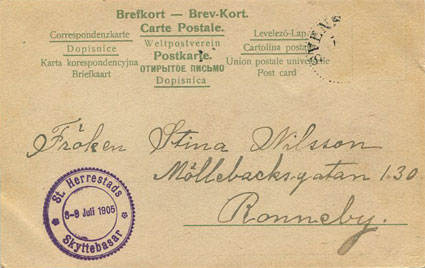 Brefkort — Brev-Kort.
Carte Postale.
Correspondenzkarte
Dopisnice
Karta korespondencyjna
Briefkaart
Weltpostverein
Postkarte.
ОТКРЫТОЕ ПИСЬМО
Dopisnica
Levelező-Lap.
Cartolina postale
Union postale universelle
Post card
SVEN
Fröken Stina Nilsson
Möllebacksgatan 130
Ronneby.
St. Herrestads
6-9 Juli 1905
Skyttebasar